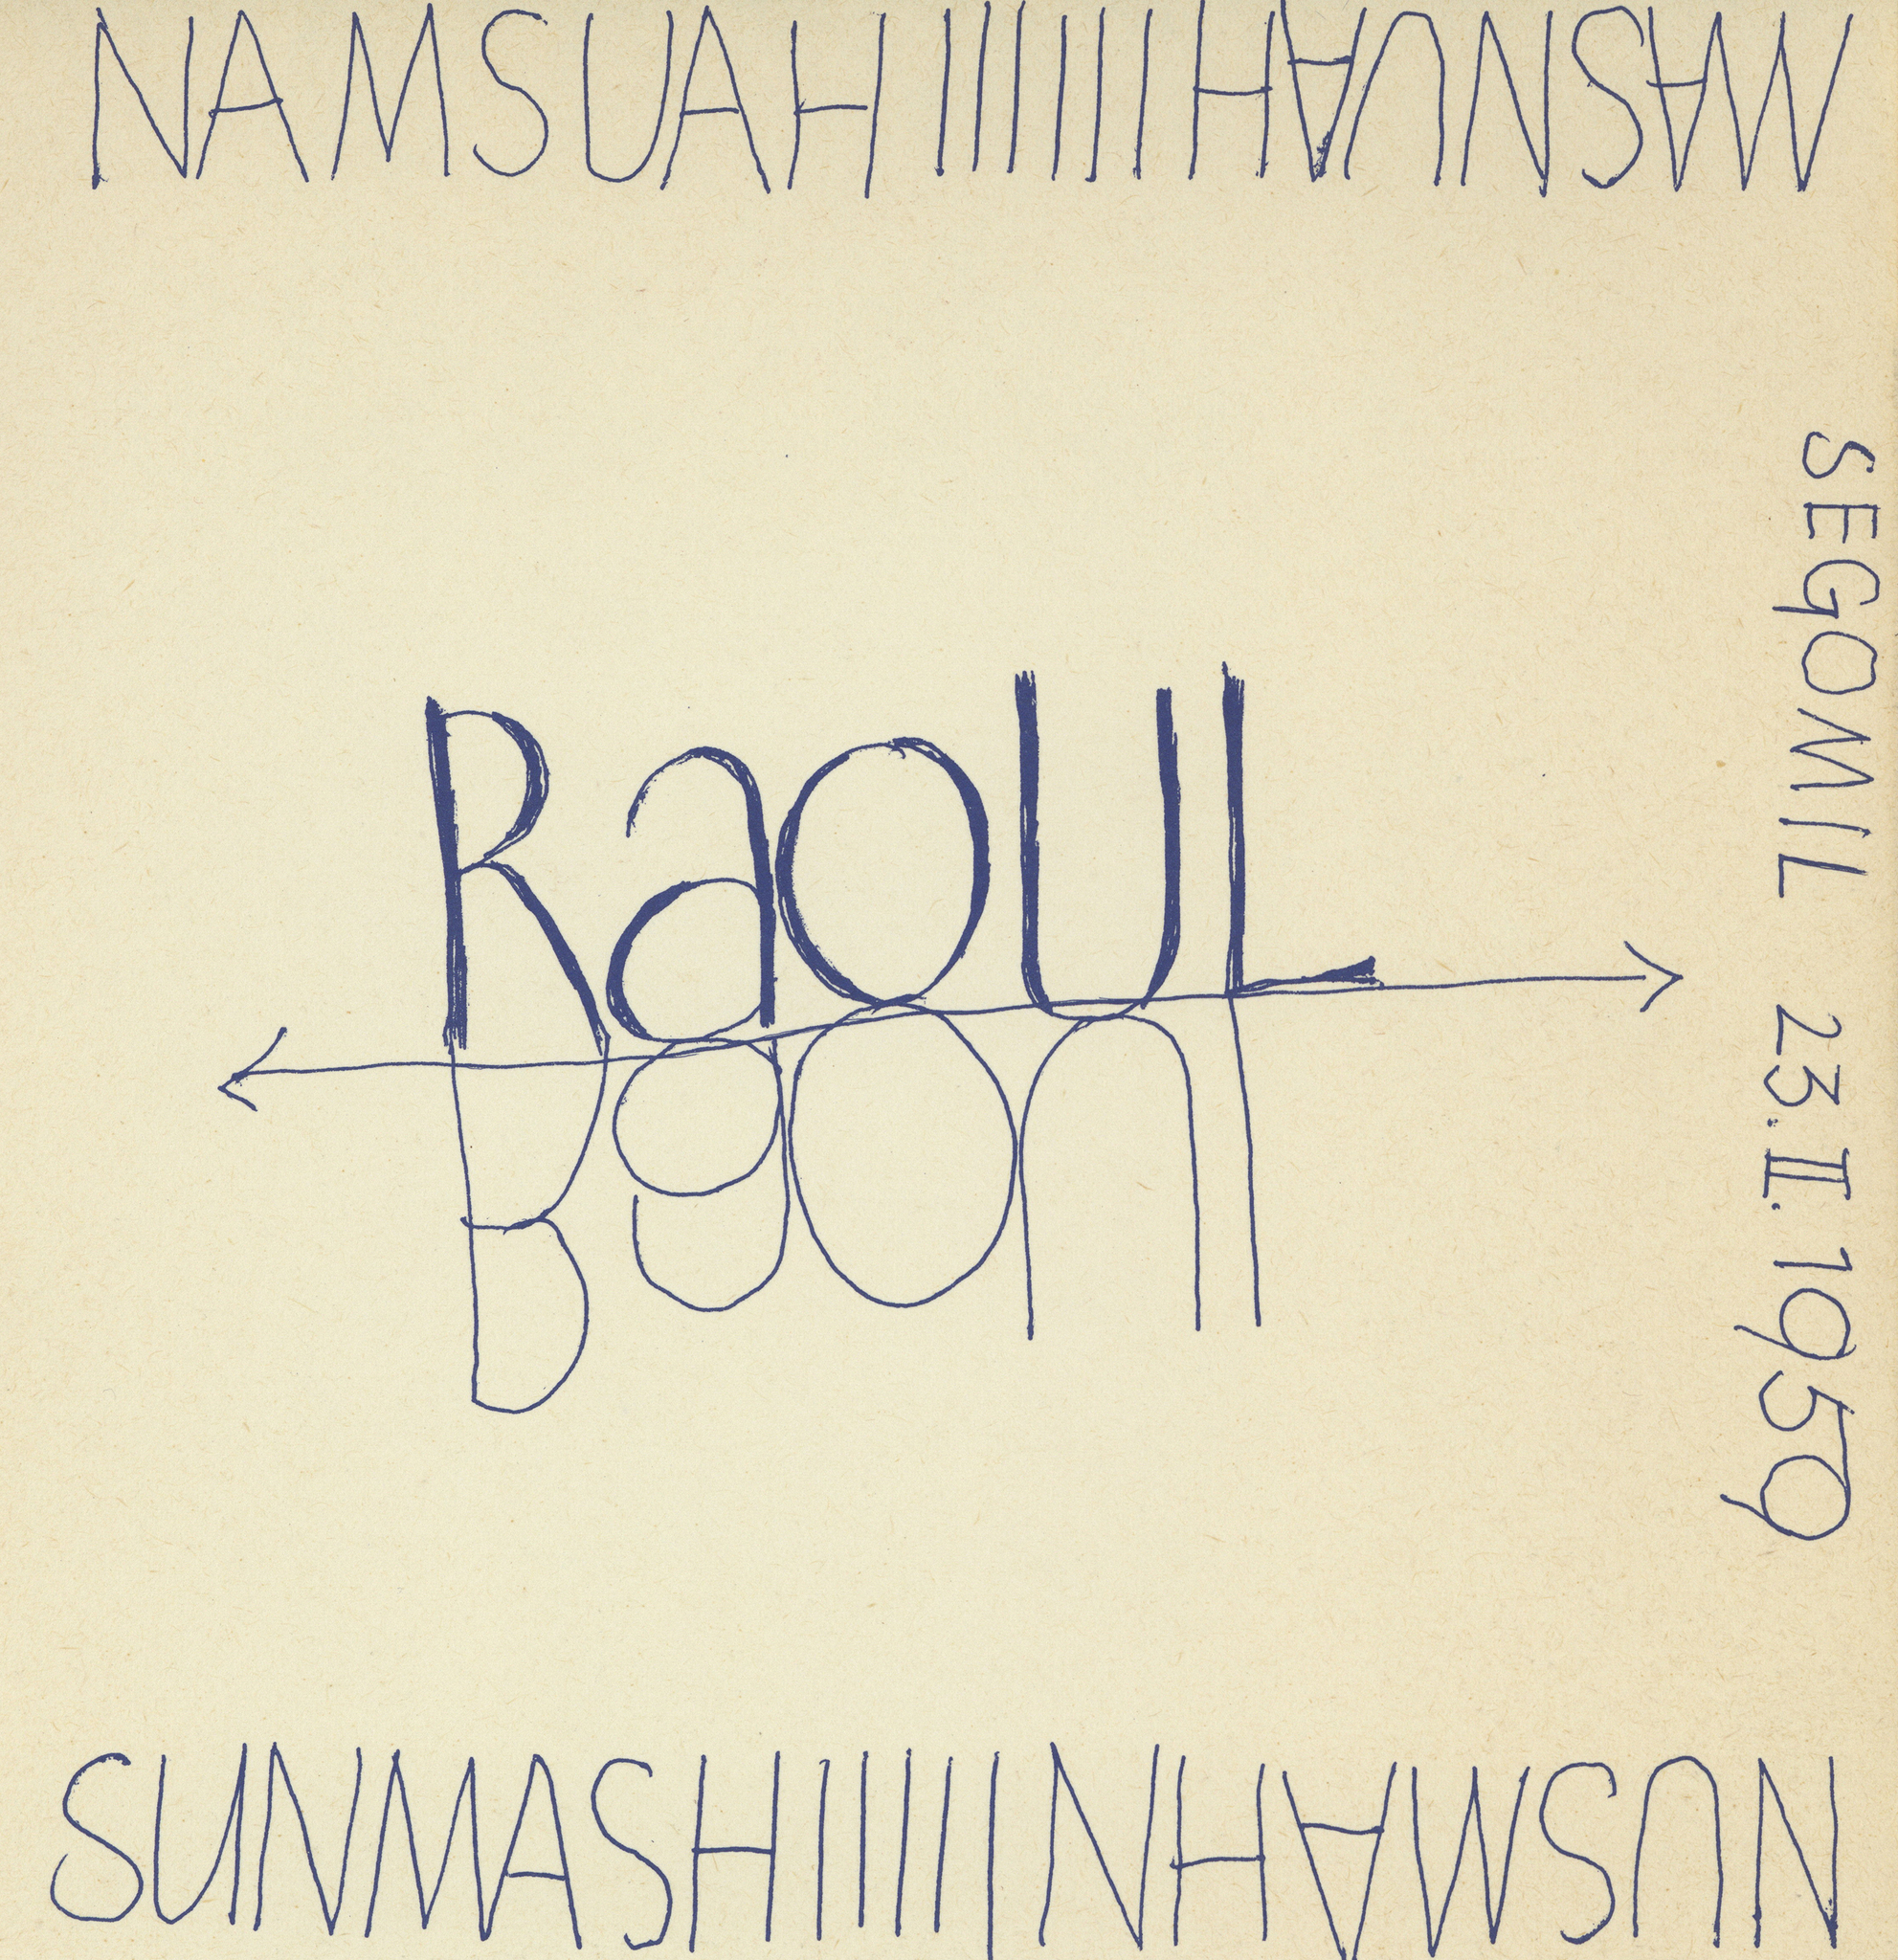 NAMSUAHIIIIIIH∀∩NS∀W
RaoUL
SEGOMIL 23.II.1959
SUNMASHIIIIINH∀WS∩N